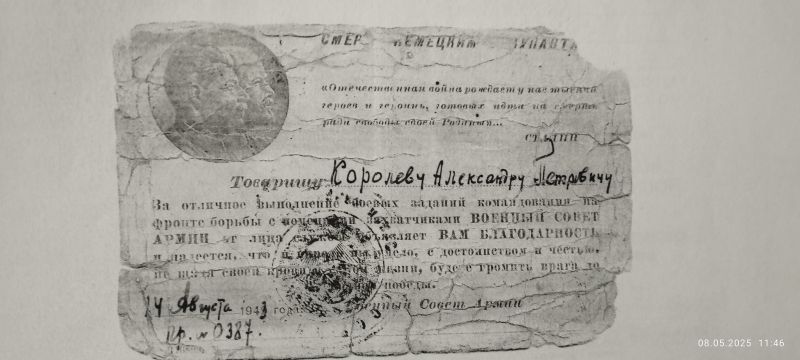 СМЕРТЬ НЕМЕЦКИМ
«Отечественная война рождает у нас тысячи
героев и героинь, готовых идти на смерть
ради свободы своей Родины»...
СТАЛИН
Товарищу Королеву Александру Петровичу
За отличное выполнение боевых заданий командования на
фронте борьбы с немецкими захватчиками ВОЕННЫЙ СОВЕТ
АРМИИ от лица службы объявляет ВАМ БЛАГОДАРНОСТЬ
и надеется, что и впредь Вы смело, с достоинством и честью,
не щадя своей крови и самой жизни, будете громить врага до
победы.
14 Августа 1943 года. Военный Совет Армии
пр. № 0387.
08.05.2025 11:46